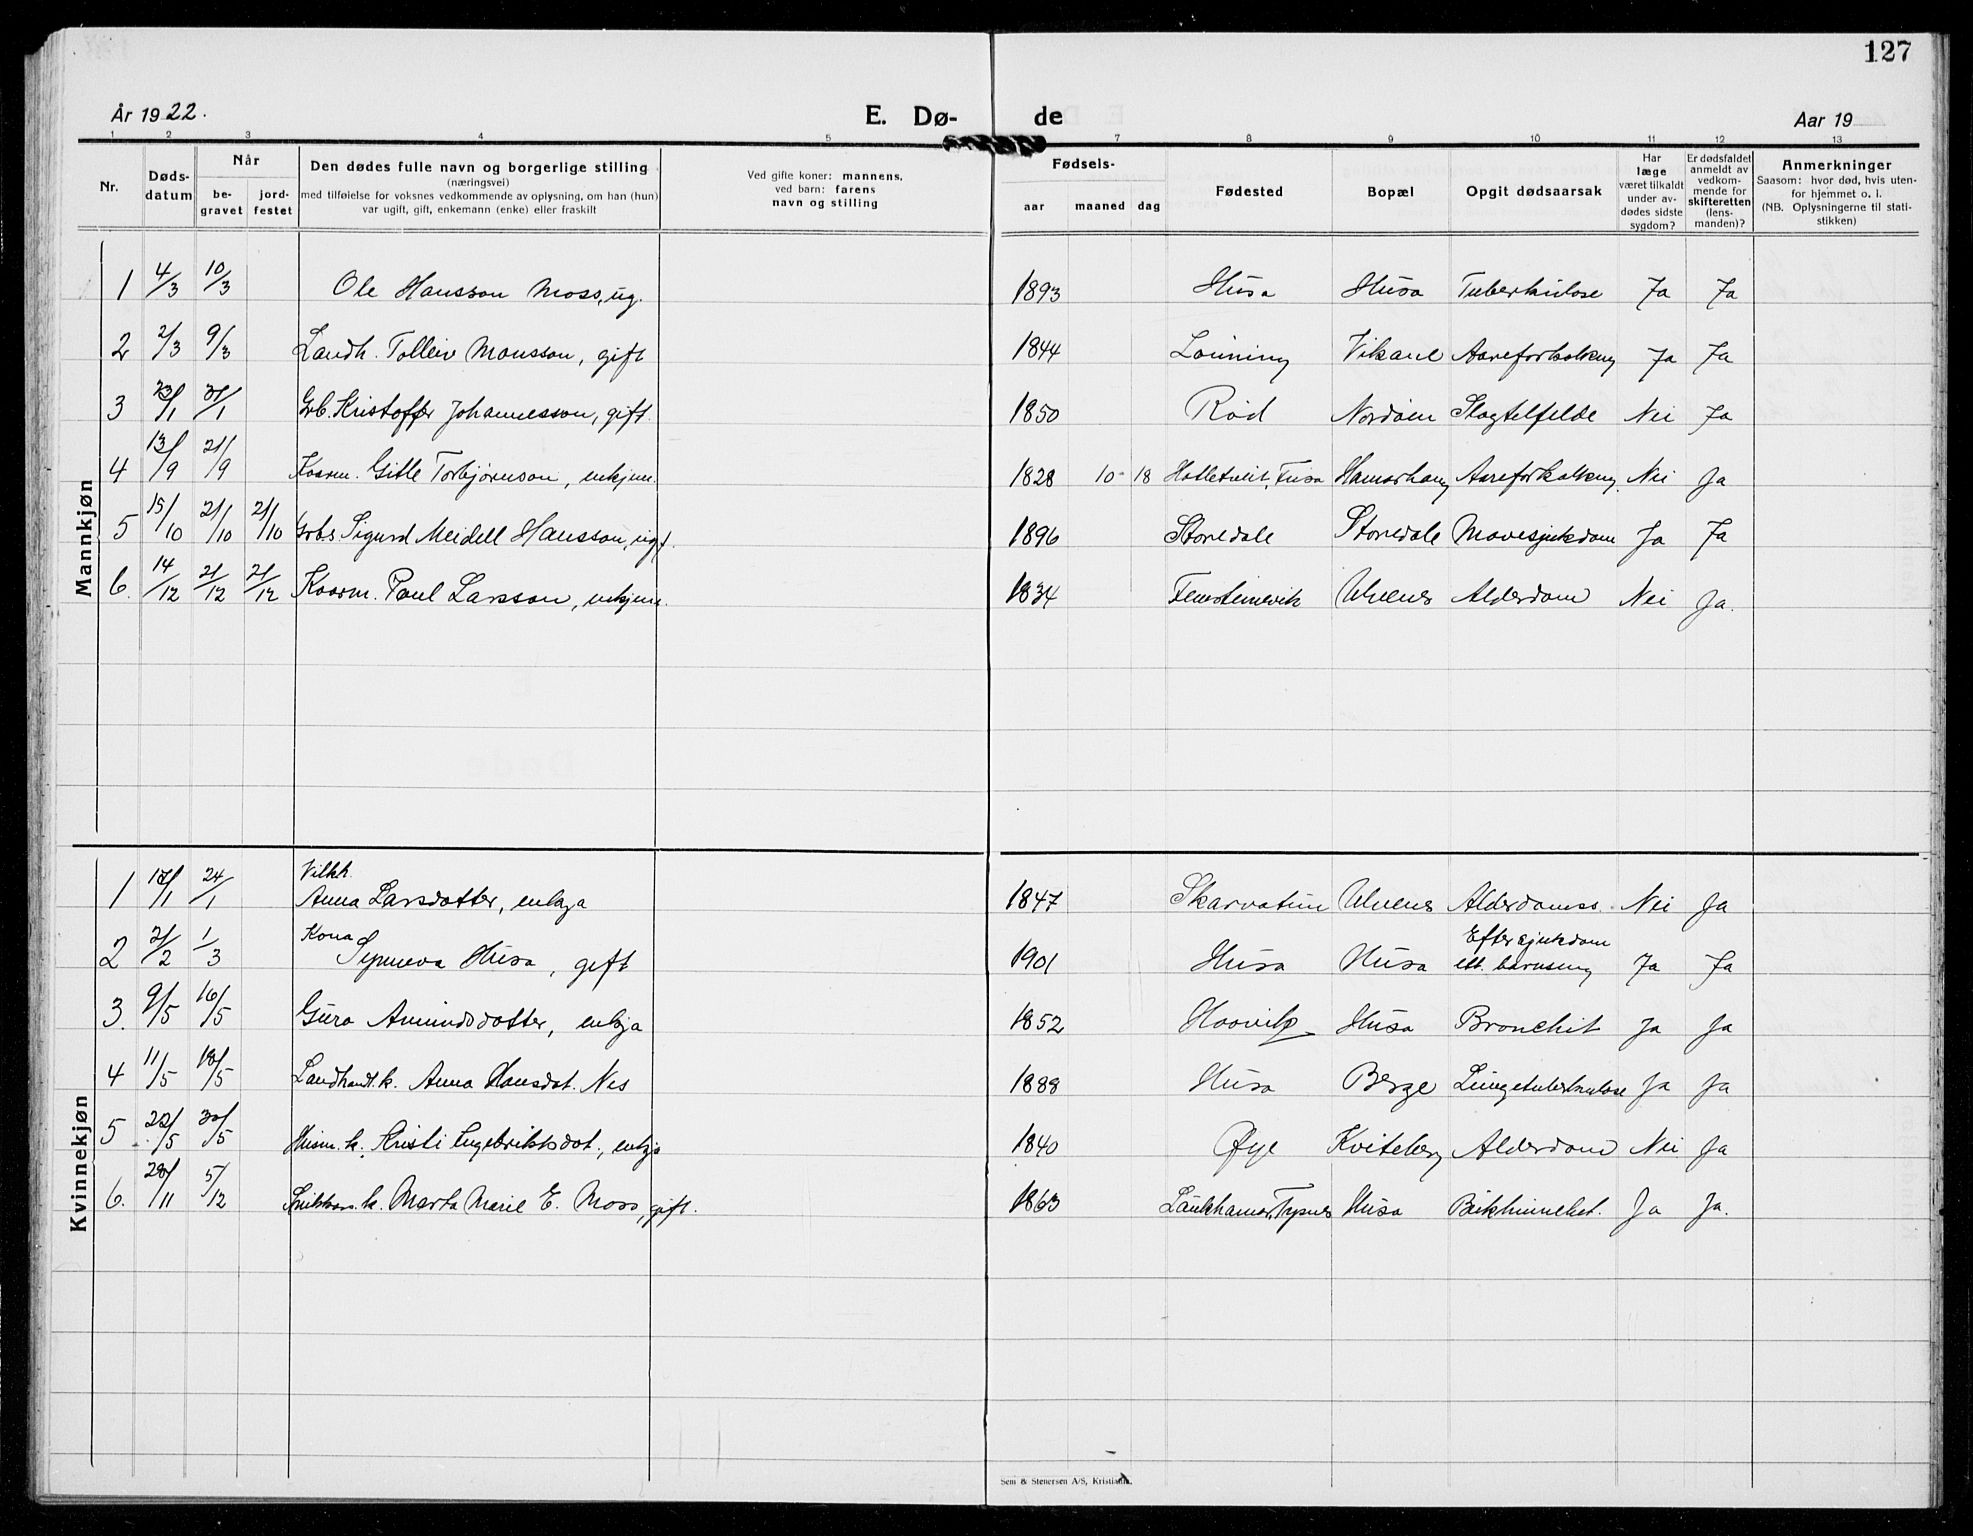 127
År 1922.
E. Dø-
de
Aar 19
1 2 3 4 5 7 8 9 10 11 12 13
Nr.
Døds-
datum
Når
be-
gravet
jord-
festet
Den dødes fulle navn og borgerlige stilling
(næringsvei)
med tilføielse for voksnes vedkommende av oplysning, om han (hun)
var ugift, gift, enkemann (enke) eller fraskilt
Ved gifte koner: mannens,
ved barn: farens
navn og stilling
Fødsels-
aar maaned dag
Fødested
Bopæl
Opgit dødsaarsak
Har
læge
været tilkaldt
under av-
dødes sidste
sygdom?
Er dødsfaldet
anmeldt av
vedkom-
mende for
skifteretten
(lens-
manden)?
Anmerkninger
Saasom: hvor død, hvis uten-
for hjemmet o. l.
(NB. Oplysningerne til stati-
stikken)
Mannkjøn
1 4/3 10/3 Ole Hansson Moss, ug. 1893 Husa Husa Tuberkulose Ja Ja
2 2/3 9/3 Landh. Tolleiv Monsson, gift 1844 Lønning Vikane Aareforkalkng Ja Ja
3 23/1 31/1 Grb. Kristoffer Johannesson, gift. 1850 Rød Nordøen Slagtilfelde Nei Ja
4 13/9 21/9 Kaarm. Gitle Torbjørnson, enkjem. 1828 10 18 Hatletveit, Fusa Hamarhaug Aareforkalkng. Nei Ja
5 15/10 21/10 21/10 Grbs Sigurd Meidell Hansson, ugt. 1896 Storedale Storedale Mavesjukdom Ja Ja
6. 14/12 21/12 21/12 Kaarm. Paul Larsson, enkjem. 1834 Femsteinevik Ulvenes Alderdom Nei Ja.
Kvinnekjøn
Vilkk.
1 17/1 24/1 Anna Larsdotter, enkja 1847 Skarvatun Ulvenes Alderdomss. Nei Ja
Kona
2 21/2 1/3 Synneva Husa, gift 1901 Husa Husa Efter sjukdom
ett. barnseng Ja Ja
3. 9/5 16/5 Guro Amundsdotter, enkja 1852 Haavik Husa Bronchit Ja Ja
4 11/5 18/5 Landhandl.k. Anna Hansdot. Nes 1888 Husa Berge Lungetuberkulose Ja Ja
5 22/5 30/5 Husm. k. Kristi Engebriktsdot., enkja 1840 Øye Kviteberg Alderdom Nei Ja
6. 28/11 5/12 Snikkars. k. Marta Marie E. Moss, gift. 1863 Laukhamar, Tysnes Husa Bukhinnebet. Ja Ja.
Sem & Stenersen A/S, Kristiania.